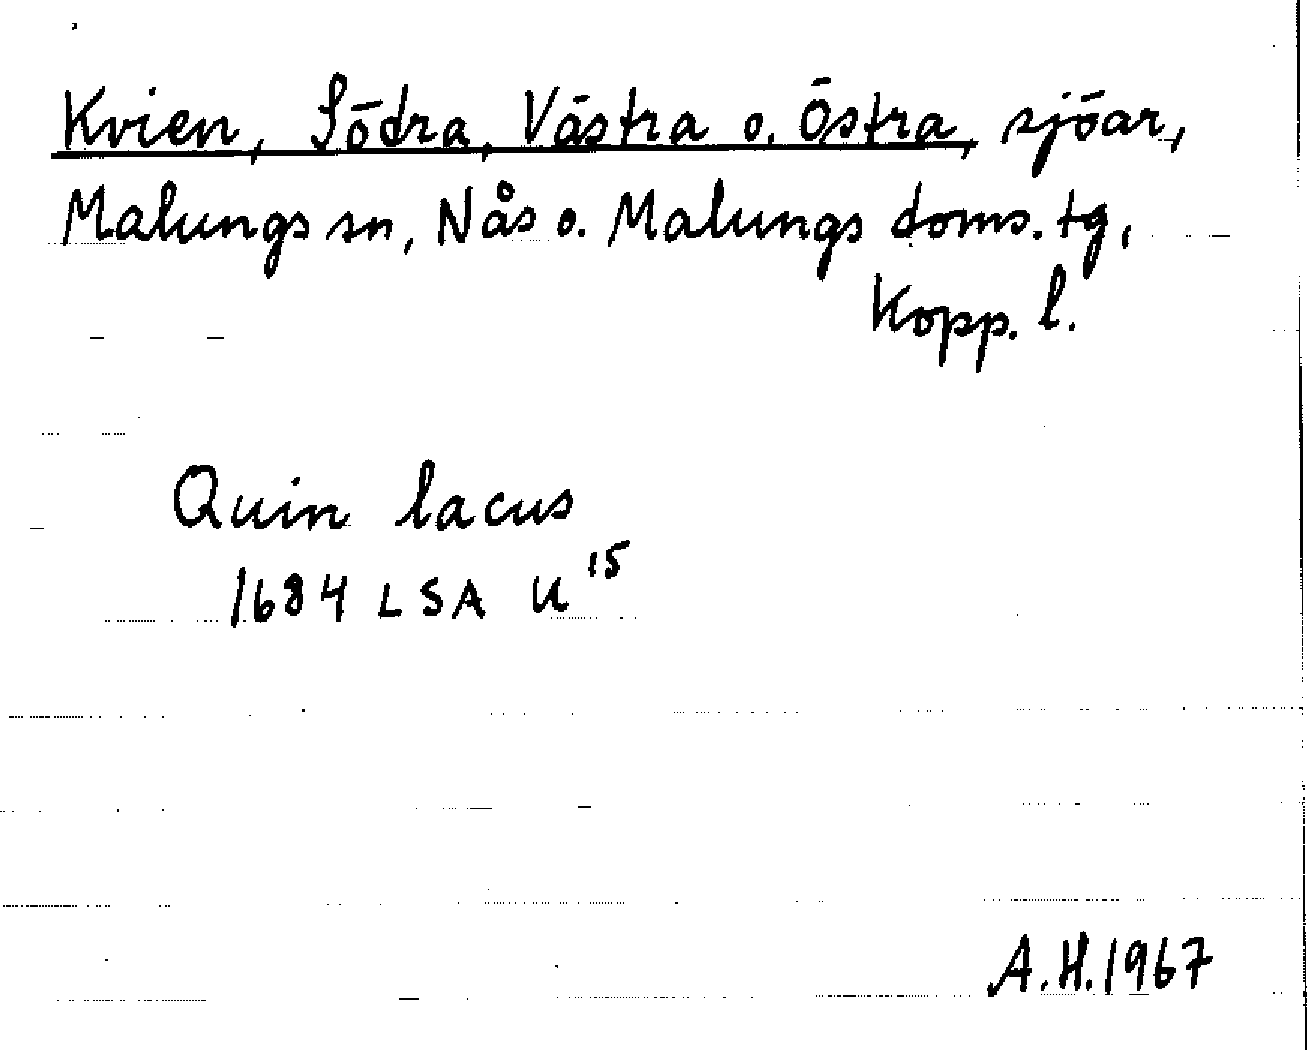 Kvien, Södra, Västra o. Östra, sjöar,
Malungs sn, Nås o. Malungs doms. tg,
Kopp. l.
Quin lacus
1684 LSA U 15
A.H. 1967